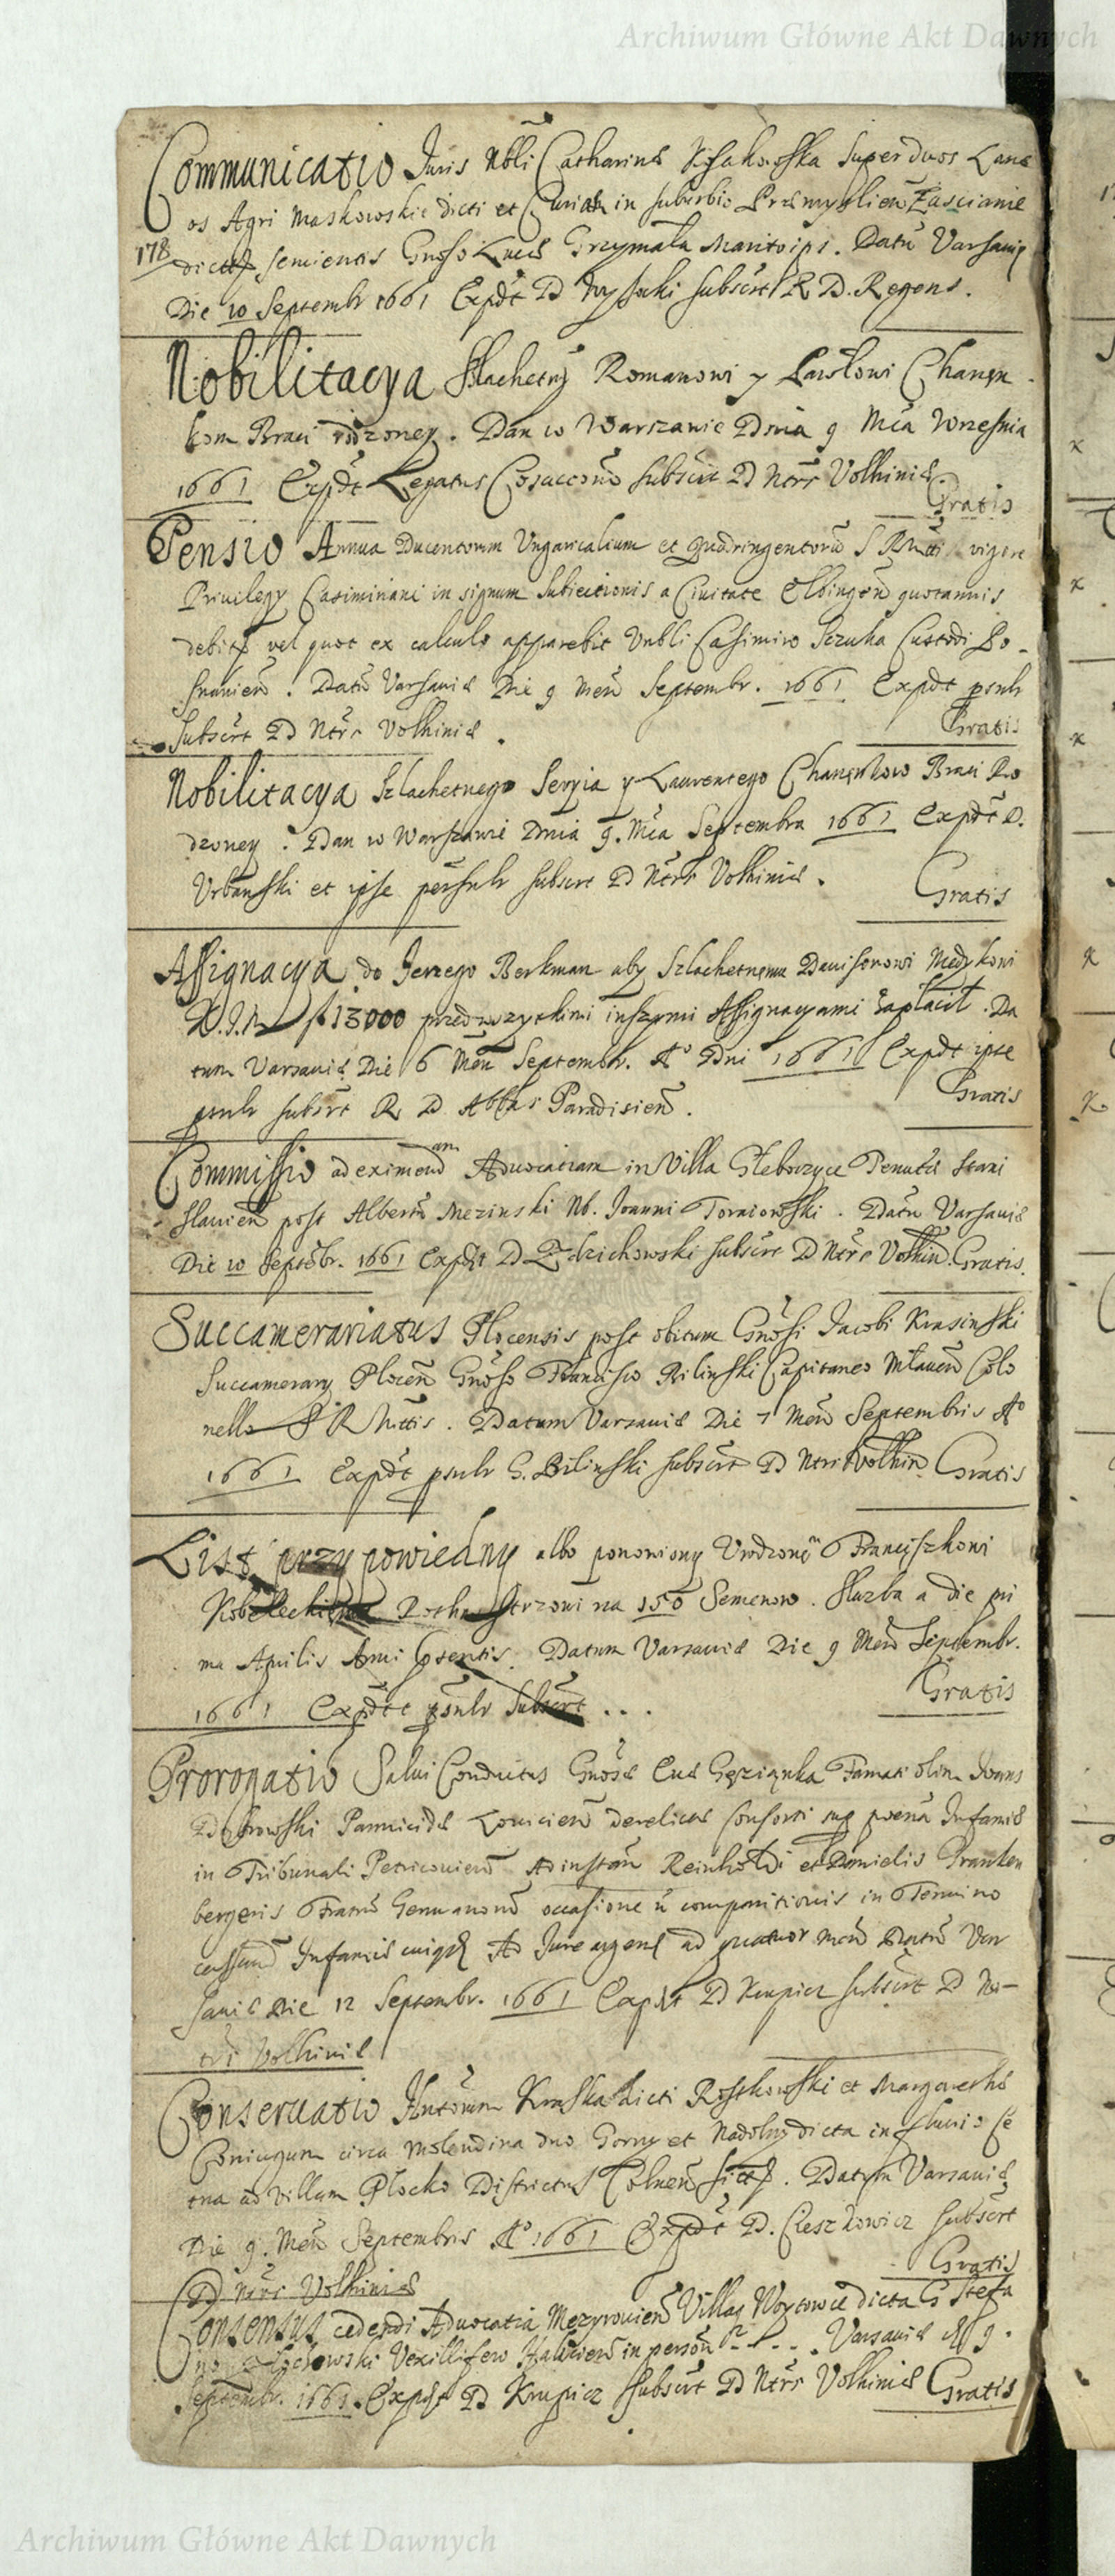 Archiwum Główne Akt Dawnych
Communicatio Juris Nbli Catharinæ super duos Lane
os Agri Maskowskie dicti et Curiae in suburbio Przemyslien Zascianie
178
dictæ servientis Gnoso Lucæ Grzymała Marito ips. Datū Varsaviæ
Die 10 Septembr 1661 Expdt D Wysocki subscrt R D. Regens.
Nobilitacya Szlachetny Romanowi y Pawłowi Chanen
kom Braci rodzoney. Dan w Warszawie Dnia 9 Mca Wrzesnia
1661 Expdt Legatus Cosaccorū subscrt D Ntrr Volhiniæ
Gratis
Pensio Annua Ducentorum Ungaricalium et Quadringentorū S R Mttis vigore
Privilegy Casimiriani in signum subiectionis a Civitate Elbingen quotannis
debitæ vel quot ex calculo apparebit Vnbli Casimiro Szczuka Custodi Po-
snanien. Datū Varsaviæ Die 9 Men Septembr. 1661 Expdt psnlr
Subscrt D Ntrr Volhiniæ.
Gratis
Nobilitacya Szlachetnego Sergia y Laurentego Braci Ro
dzoney. Dan w Warszawi Dnia 9. Mca Septembra 1661 Expdt D.
Urbanski et ipse persnlr subscrt D Ntrr Volhiniæ.
Gratis
Assignacya do Jerzego Berkman aby Szlachetnemu Davisonowi Medykowi
K.J.M fl 13000 przed wszystkimi inszymi Assignacyami zapłacił. Da
tum Varsaviæ Die 6 Men Septembr. Aº Dni 1661 Expdt ipse
psnlr subscrt R D. Abbas Paradisien.
Gratis
Commissio ad eximend
am
Advocatiam in Villa Tenutæ Stani
slavien post Albertū Mezinski Nb. Joanni Torniowski. Datū Varsaviæ
Die 10 Septebr. 1661 Expdt D subscrt D Ntrr Volhin. Gratis.
Succamerariatus Plocensis post obitum Gnosi Jacobi Krasinski
Succamerary Plocen Gnoso Francisco Bilinski Capitaneo Mlaven Colo
nello S R Mttis. Datum Varsaviæ Die 7 Men Septembris Aº
1661 Expdt psnlr G. Bilinski subscrt D Ntrr Volhin. Gratis
List przypowiedny albo ponowiony Urodzonem Franciszkowi
Rothmistrzowi na 150 Semenow. Służba a die pri
ma Aprilis Anni psentis. Datum Varsaviæ Die 9 Men Septembr.
1661 Expdt psnlr Subscrt ...
Gratis
Prorogatio Salvi Conductus Gnosæ Evæ Famati olim Joans
Parricidæ Lovicien derelictæ consorti sup poena Infamiæ
in Tribunali Petricovien Ad instan Reinholdi et Danielis Franken
bergeris Fratrū Germanorū occasione n comparitionis in Termino
Infamiæ Ad Jure agend ad quatuor men Datū Var
saviæ Die 12 Septembr. 1661 Expdt D Krupicz subscrt D No-
tri Volhiniæ
Conservatio Kraska dicti Roszkowski et Margarethæ
Coniugum circa Molendina duo Gorny et Nadolny dicta in fluvio Ce
tna ad villam Plocko Districtus Colnen sita. Datum Varsaviæ
Die 9. Men Septembris Aº 1661 Expdt D. Cieszkowicz subscrt
D Ntri Volhiniæ
Gratis
Consensus cedendi Advocatia Villæ Woytowce dicta G Stefa
no Vexillifero Halicien in person ... Varsaviæ 9.
Septembr. 1661. Expdt D Krupicz subscrt D Ntrr Volhiniæ Gratis
Archiwum Główne Akt Dawnych